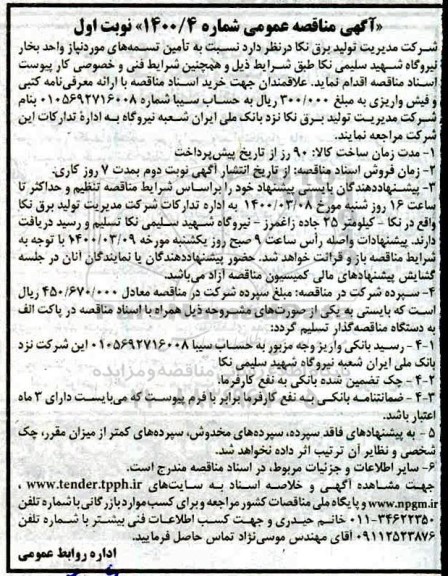 «آگهی مناقصه عمومی شماره ۱۴۰۰/۴» نوبت اول
شرکت مدیریت تولید برق نکا درنظر دارد نسبت به تأمین تسمه‌های موردنیاز واحد بخار
نیروگاه شهید سلیمی نکا طبق شرایط ذیل و همچنین شرایط فنی و خصوصی کار پیوست
اسناد مناقصه اقدام نماید. علاقمندان جهت خرید اسناد مناقصه با ارائه معرفی‌نامه کتبی
و فیش واریزی به مبلغ ۳۰۰/۰۰۰ ریال به حساب سیبا شماره ۰۱۰۵۶۹۲۷۱۶۰۰۸ بنام
شرکت مدیریت تولید برق نکا نزد بانک ملی ایران شعبه نیروگاه به ادارۀ تدارکات این
شرکت مراجعه نمایند.
۱- مدت زمان ساخت کالا: ۹۰ رز از تاریخ پیش‌پرداخت
۲- زمان فروش اسناد مناقصه: از تاریخ انتشار آگهی نوبت دوم بمدت ۷ روز کاری.
۳- پیشنهاددهندگان بایستی پیشنهاد خود را براساس شرایط مناقصه تنظیم و حداکثر تا
ساعت ۱۶ روز شنبه مورخ ۱۴۰۰/۰۳/۰۸ به اداره تدارکات شرکت مدیریت تولید برق نکا
واقع در نکا - کیلومتر ۲۵ جاده زاغمرز - نیروگاه شهید سلیمی نکا تسلیم و رسید دریافت
دارند. پیشنهادات واصله رأس ساعت ۹ صبح روز یکشنبه مورخه ۱۴۰۰/۰۳/۰۹ با توجه به
شرایط مناقصه باز و قرائت خواهد شد. حضور پیشنهاددهندگان یا نمایندگان آنان در جلسه
گشایش پیشنهادهای مالی کمیسیون مناقصه آزاد می‌باشد.
۴- سپرده شرکت در مناقصه: مبلغ سپرده شرکت در مناقصه معادل ۴۵۰/۶۷۰/۰۰۰ ریال
است که بایستی به یکی از صورت‌های مشروحه ذیل همراه با اسناد مناقصه در پاکت الف
به دستگاه مناقصه‌گذار تسلیم گردد:
۴-۱- رسید بانکی واریز وجه مزبور به حساب سیبا ۰۱۰۵۶۹۲۷۱۶۰۰۸ این شرکت نزد
بانک ملی ایران شعبه نیروگاه شهید سلیمی نکا
۴-۲- چک تضمین شده بانکی به نفع کارفرما.
۴-۳- ضمانتنامه بانکی به نفع کارفرما برابر با فرم پیوست که می‌بایست دارای ۳ ماه
اعتبار باشد.
۵- به پیشنهادهای فاقد سپرده، سپرده‌های مخدوش، سپرده‌های کمتر از میزان مقرر، چک
شخصی و نظایر آن ترتیب اثر داده نخواهد شد.
۶- سایر اطلاعات و جزئیات مربوط، در اسناد مناقصه مندرج است.
جهت مشاهده آگهی و خلاصه اسناد به سایت‌های www.tender.tpph.ir ،
www.npgm.ir و پایگاه ملی مناقصات کشور مراجعه و برای کسب موارد بازرگانی با شماره تلفن
۰۱۱-۳۴۶۲۲۳۵۰ خانم حیدری و جهت کسب اطلاعات فنی بیشتر با شماره تلفن
۰۹۱۱۲۵۲۳۸۷۶ آقای مهندس موسی‌نژاد تماس حاصل فرمایید.
اداره روابط عمومی